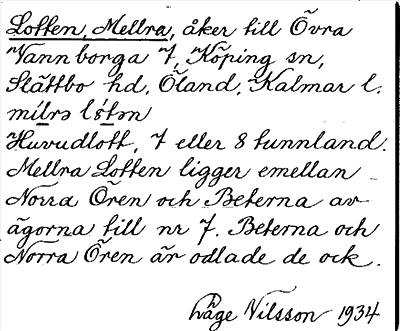 Lotten, Mellra, åker till Övra
Vannborga 7, Köping sn,
Slättbo hd, Öland, Kalmar l.
mi̱lrə ló̱tən
Huvudlott, 7 eller 8 tunnland.
Mellra Lotten ligger emellan
Norra Ören och Beterna av
ägorna till nr 7. Beterna och
Norra Ören är odlade de ock.
Åge Nilsson 1934